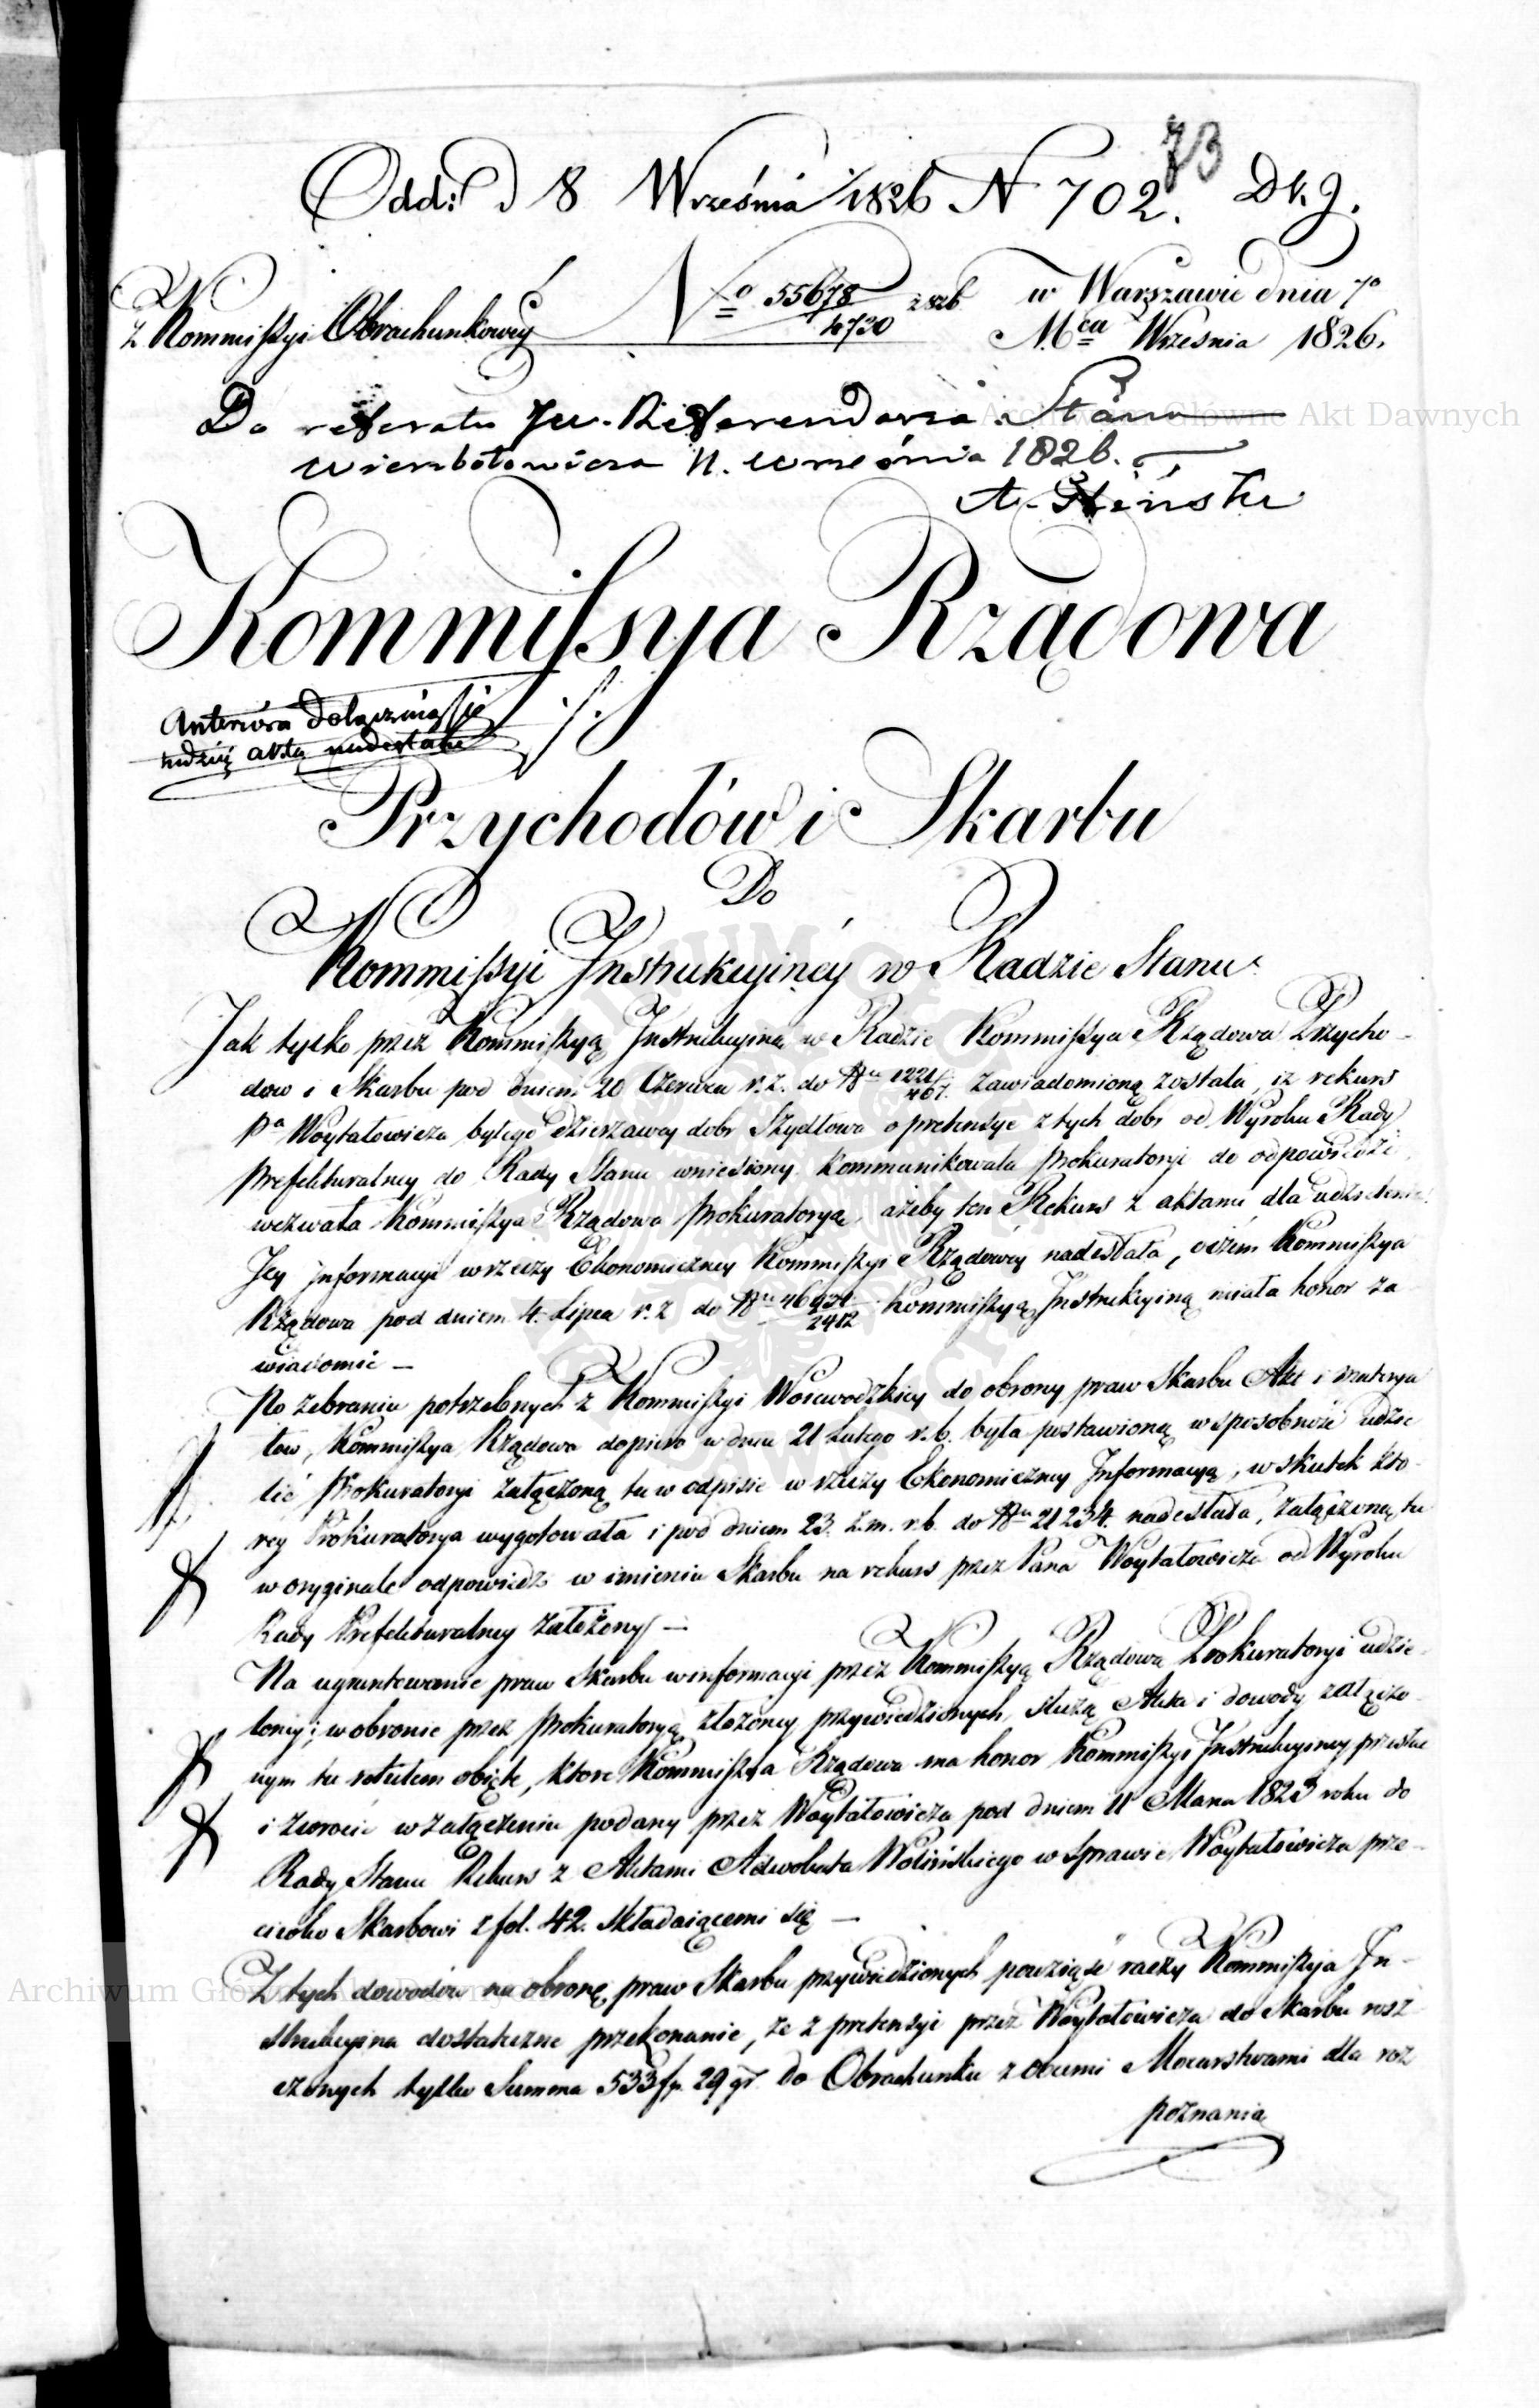 73
Odd: d 8 Września 1826 N 702. Dr. J.
Z Kommissyi Obrachunkowey
No 55678/4730 1826
w Warszawie dnia 7o
Mca Wrzesnia 1826.
Do referatu JW. Referendarza Stanu
Wierzbołowicza 11. września 1826.
Kommissya Rządowa
Anteriora dołączaią się
Przychodów i Skarbu
Do
Kommissyi Instrukcyiney w Radzie Stanu
Jak tylko przez Kommissyą Instrukcyiną w Radzie Kommissya Rządowa Przycho-
dow i Skarbu pod dniem 20 Czerwca r. z. do Nru 1221/467. zawiadomioną została, iz rekurs
Pa Woytatowicza byłego dzierzawcy dobr Szydłowa o pretensye z tych dobr od Wyroku Rady
Prefekturalney do Rady Stanu wniesiony kommunikowała Prokuratoryi do odpowiedzi,
wezwała Kommissya Rządowa Prokuratoryą, ażeby ten Rekurs z aktami dla udzielenia
Jey Informacyi w rzeczy Ekonomiczney Kommissyi Rządowey nadesłała, oczém Kommissya
Rządowa pod dniem 4. Lipca r. z do Nru 46931/2482 Kommissyą Instrukcyiną miała honor za
wiadomić —
Po zebraniu potrzebnych z Kommissyi Woiewodzkiey do obrony praw Skarbu Akt i materya
łow, Kommissya Rządowa dopiero w dniu 21 Lutego r. b. była postawioną w sposobność udzie
lić Prokuratoryi załączoną tu w odpisie w rzeczy Ekonomiczney Informacyą, w skutek kto-
rey Prokuratorya wygotowała i pod dniem 23. z. m. r. b. do Nru 21234. nadesłała, załączoną tu
w oryginale odpowiedź w imieniu Skarbu na rekurs przez Pana Woytatowicza od Wyroku
Rady Prefekturalney założony —
Na ugruntowanie praw Skarbu w informacyi przez Kommissyą Rządową Prokuratoryi udzie-
loney, w obronie przez Prokuratoryą złożoney przywiedzionych, służą Akta i dowody załączo-
nym tu rotulem obięte, ktore Kommissya Rządowa ma honor Kommissyi Instrukcyiney przesłać
i zwrocić w załączeniu podany przez Woytatowicza pod dniem 11 Marca 1823 roku do
Rady Stanu Rekurs z Aktami Adwokata Wolińskiego w sprawie Woytatowicza prze-
ciwko Skarbowi z fol. 42. składaiącemi się —
Z tych dowodów na obronę praw Skarbu przywiedzionych powziąść raczy Kommissyja In-
strukcyina dostateczne przekonanie, że z pretensyi przez Woytatowicza do Skarbu rosz
czonych tylko Summa 533 fp. 29 gr. do Obrachunku z obcemi Mocarstwami dla roz
poznania
Archiwum Główne Akt Dawnych